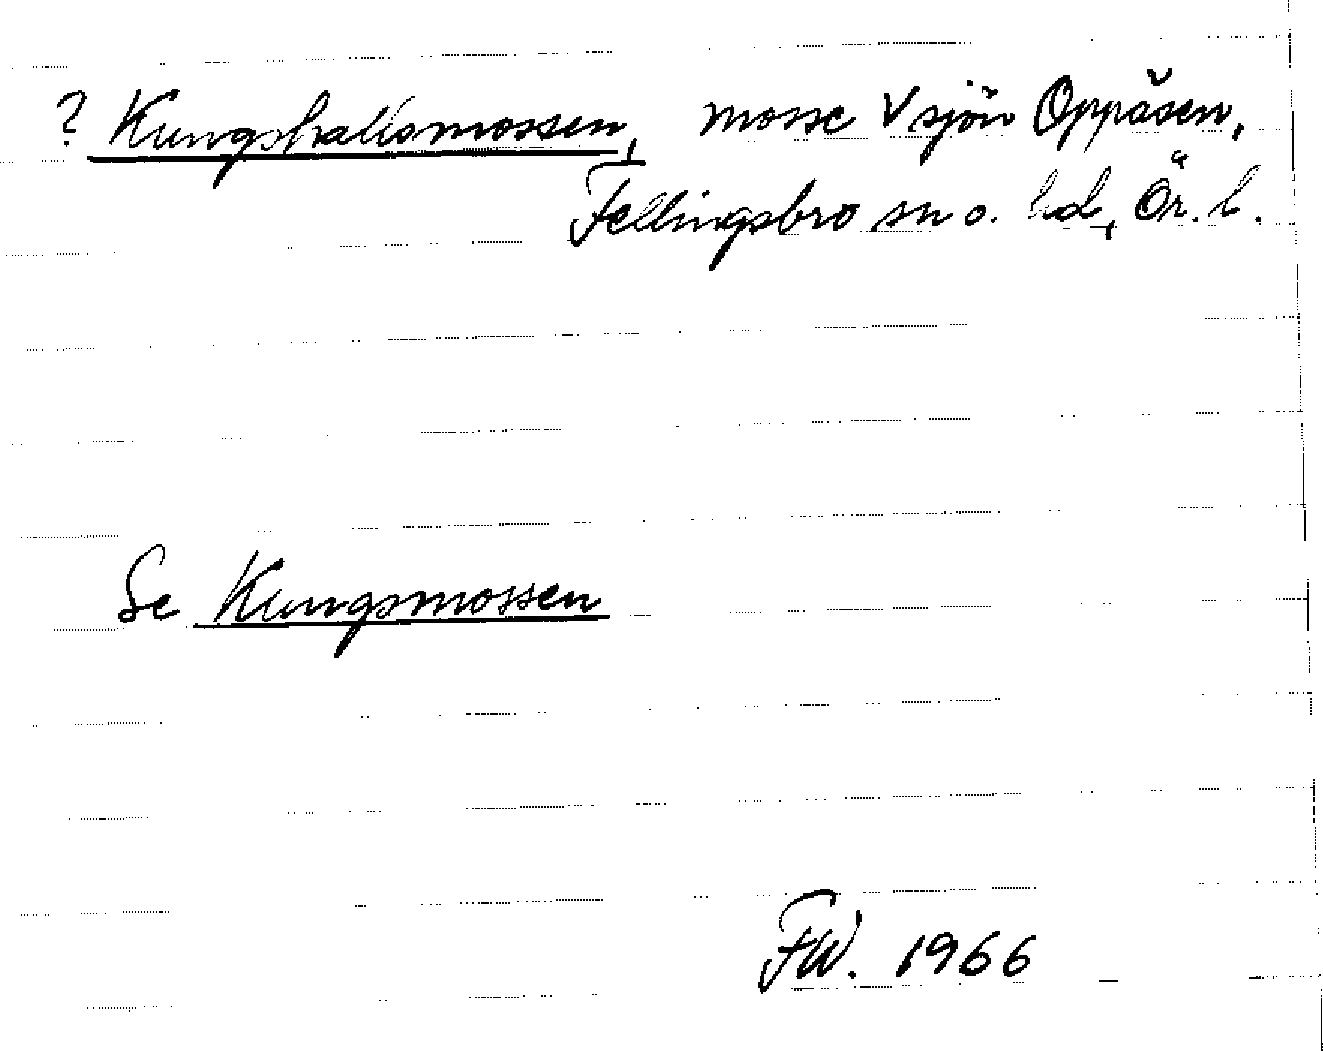 ? Kungshallsmossen, mosse V sjön Oppåsen,
Fellingsbro sn o. hd, Ör. l.
Se Kungsmossen
FW. 1966